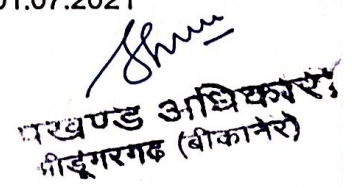 01.07.2021
पखण्ड अधिकारी
डूंगरगढ (बीकानेर)